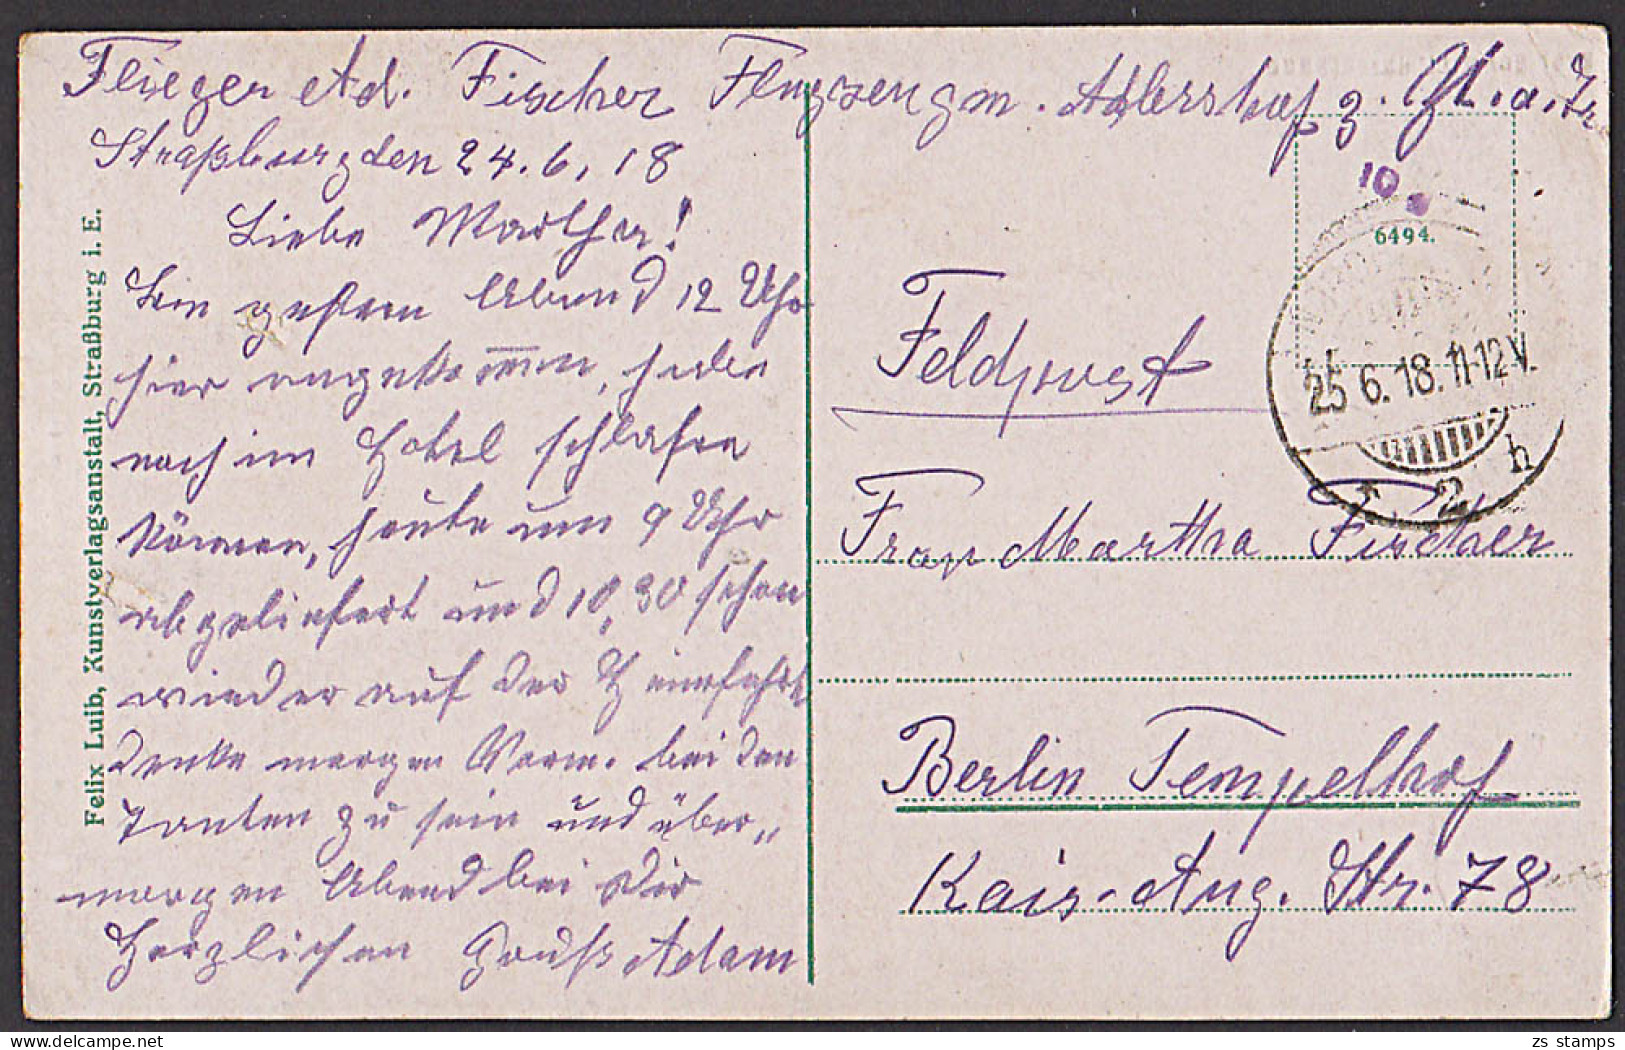 Flieger Ad. Fischer Flugzeugm. Adlershof z. Zt. a. Tr.
Straßburg den 24.6.18
Liebe Martha!
Bin gestern Abend 12 Uhr
hier angekom̅en, habe
noch im Hotel schlafen
können, heute um 9 Uhr
abgeliefert und 10,30 schon
wieder auf der Heimfahrt
denke morgen Vorm. bei den
Tanten zu sein und über„
morgen Abend bei Dir
Herzlichen Gruß Adam
Felix Luib, Kunstverlagsanstalt, Straßburg i. E.
10
6494.
25 6.18.11-12V.
2 h
Feldpost
Frau Martha Fischer
Berlin Tempelhof
Kais-Aug. Str. 78
zs stamps